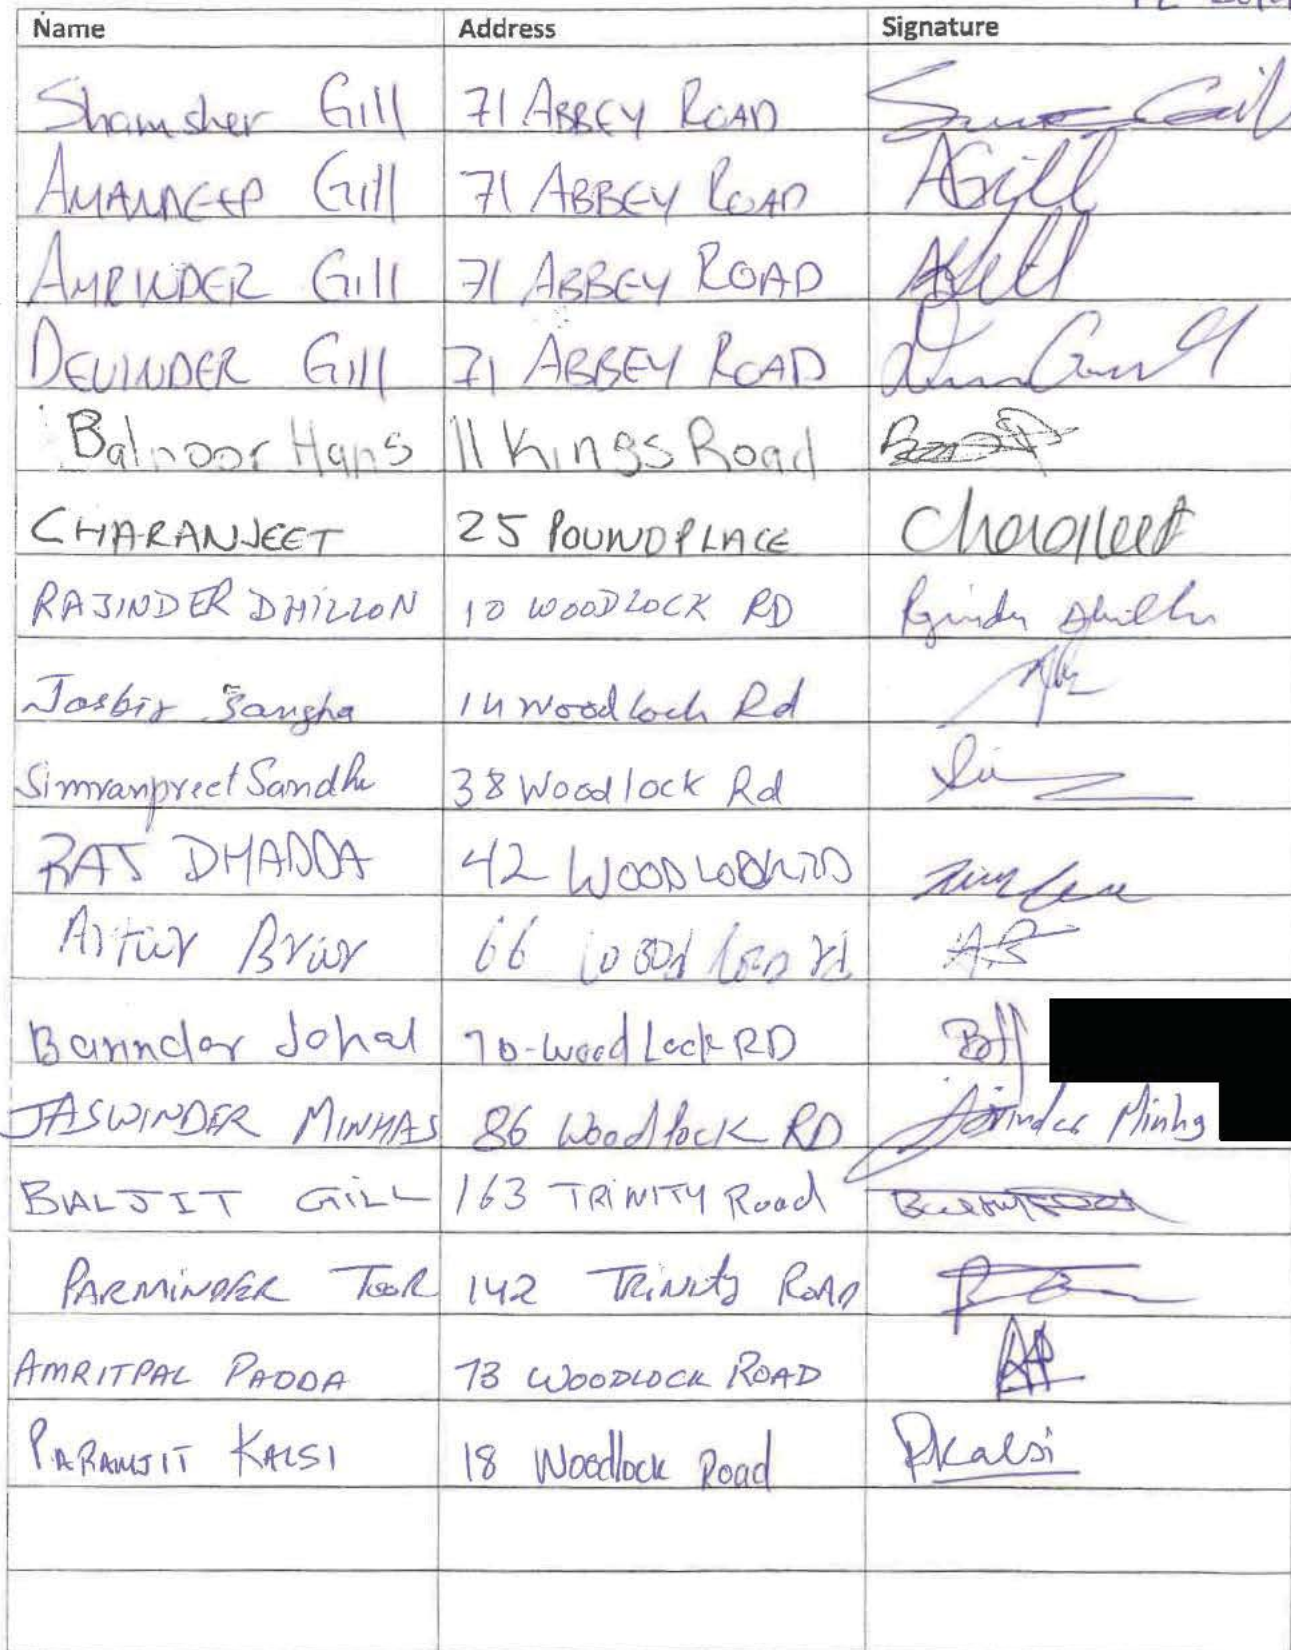 Name Address Signature
Shamsher Gill 71 ABBEY ROAD
AMANDEEP Gill 71 ABBEY ROAD AGill
AMRINDER Gill 71 ABBEY ROAD AGill
DEVINDER Gill 71 ABBEY ROAD
Balnoor Hans 11 Kings Road
CHARANJEET 25 POUND PLACE Charanjeet
RAJINDER DHILLON 10 WOODLOCK RD Rajinder Dhillon
Jasbir Sangha 14 Woodlock Rd
Simranpreet Sandhu 38 Woodlock Rd
RAJ DHADDA 42 WOODLOCK RD
Brar 66 rd AB
Barinder Johal 70-Wood Lock RD
JASWINDER MINHAS 86 Woodlock RD Jaswinder Minhas
BALJIT GILL 163 TRINITY Road
PARMINDER TOOR 142 TRINITY ROAD
AMRITPAL PADDA 73 WOODLOCK ROAD AP
PARAMJIT KALSI 18 Woodlock Road PKalsi